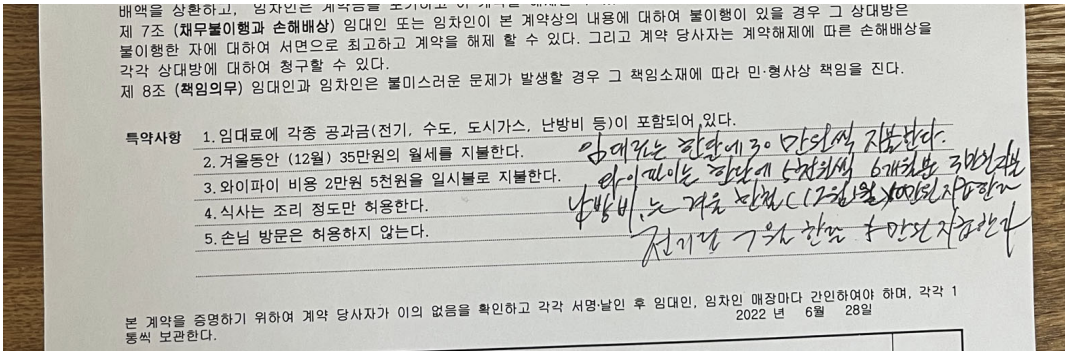 배액을 상환하고, 임차인은 계약금을 포기하고 이 계약을 해제
제 7조 (채무불이행과 손해배상) 임대인 또는 임차인이 본 계약상의 내용에 대하여 불이행이 있을 경우 그 상대방은
불이행한 자에 대하여 서면으로 최고하고 계약을 해제 할 수 있다. 그리고 계약 당사자는 계약해제에 따른 손해배상을
각각 상대방에 대하여 청구할 수 있다.
제 8조 (책임의무) 임대인과 임차인은 불미스러운 문제가 발생할 경우 그 책임소재에 따라 민·형사상 책임을 진다.
특약사항 1. 임대료에 각종 공과금(전기, 수도, 도시가스, 난방비 등)이 포함되어 있다.
2. 겨울동안 (12월) 35만원의 월세를 지불한다.
3. 와이파이 비용 2만원 5천원을 일시불로 지불한다.
4. 식사는 조리 정도만 허용한다.
5. 손님 방문은 허용하지 않는다.
임대료는 한달에 30 만원씩 지불한다.
와이파이는 한달에 5천원씩 6개월분 3만원 지불
난방비는 겨울 한철 (12월 1월) 만원 지급한다
전기담 구월 한달 만원 지급한다
본 계약을 증명하기 위하여 계약 당사자가 이의 없음을 확인하고 각각 서명·날인 후 임대인, 임차인 매장마다 간인하여야 하며, 각각 1
통씩 보관한다.
2022 년 6월 28일